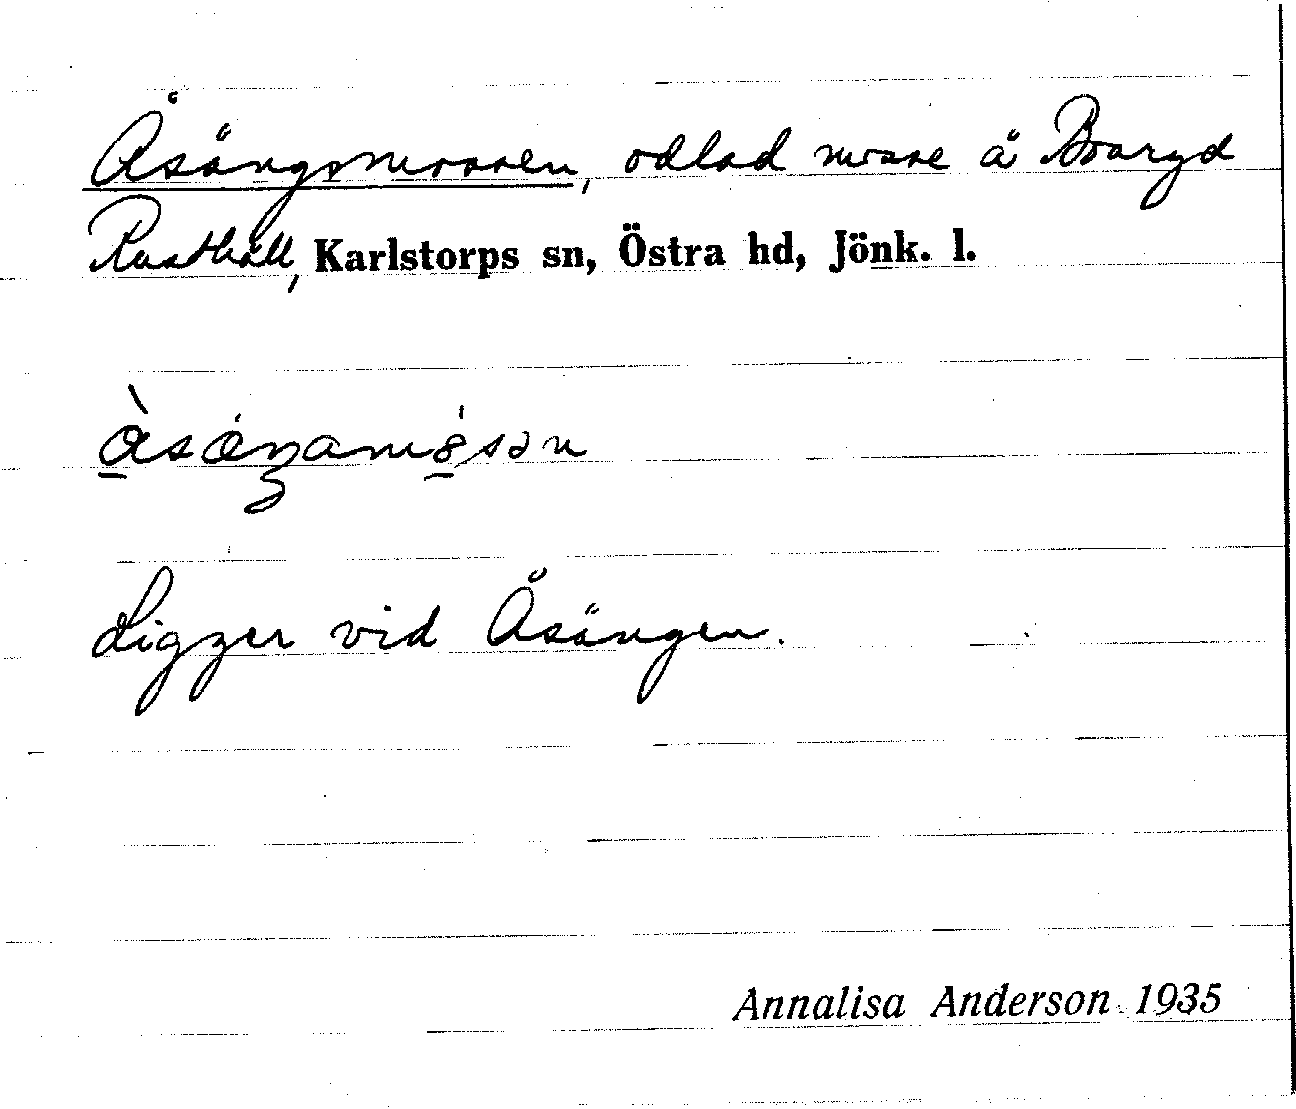 Åsängsmossen, odlad mosse å Boaryd
Rusthåll, Karlstorps sn, Östra hd, Jönk. l.
Ligger vid Åsängen.
Annalisa Anderson 1935